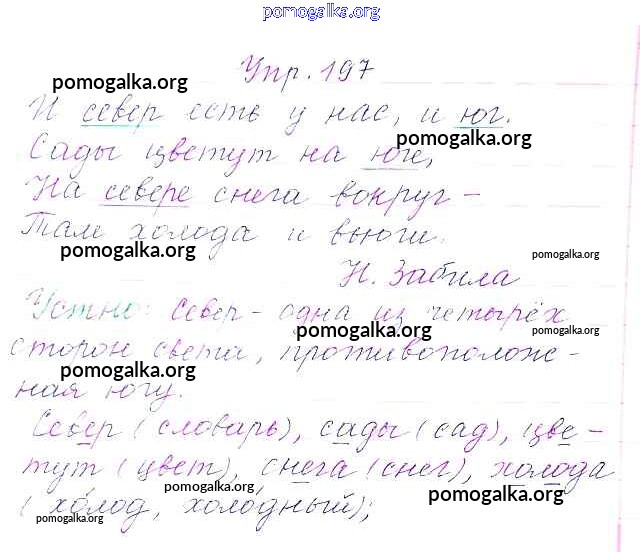 pomogalka.org
Упр. 197
pomogalka.org
И север есть у нас, и юг.
pomogalka.org
Сады цветут на юге,
На севере снега вокруг -
Там холода и вьюги.
pomogalka.org
pomogalka.org
Н. Забила
Устно: Север - одна из четырёх
pomogalka.org
pomogalka.org
сторон света, противополож-
pomogalka.org
ная югу.
Север (словарь), сады (сад), цве-
тут (цвет), снега (снег), холода
pomogalka.org
pomogalka.org
(холод, холодный);
pomogalka.org